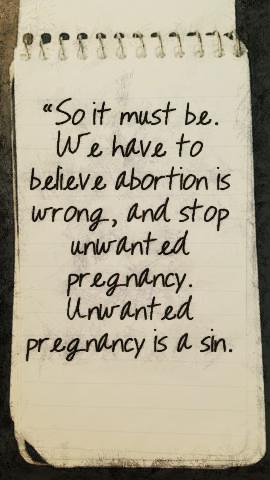 “So it must be.
We have to
believe abortion is
wrong, and stop
unwanted
pregnancy.
Unwanted
pregnancy is a sin.